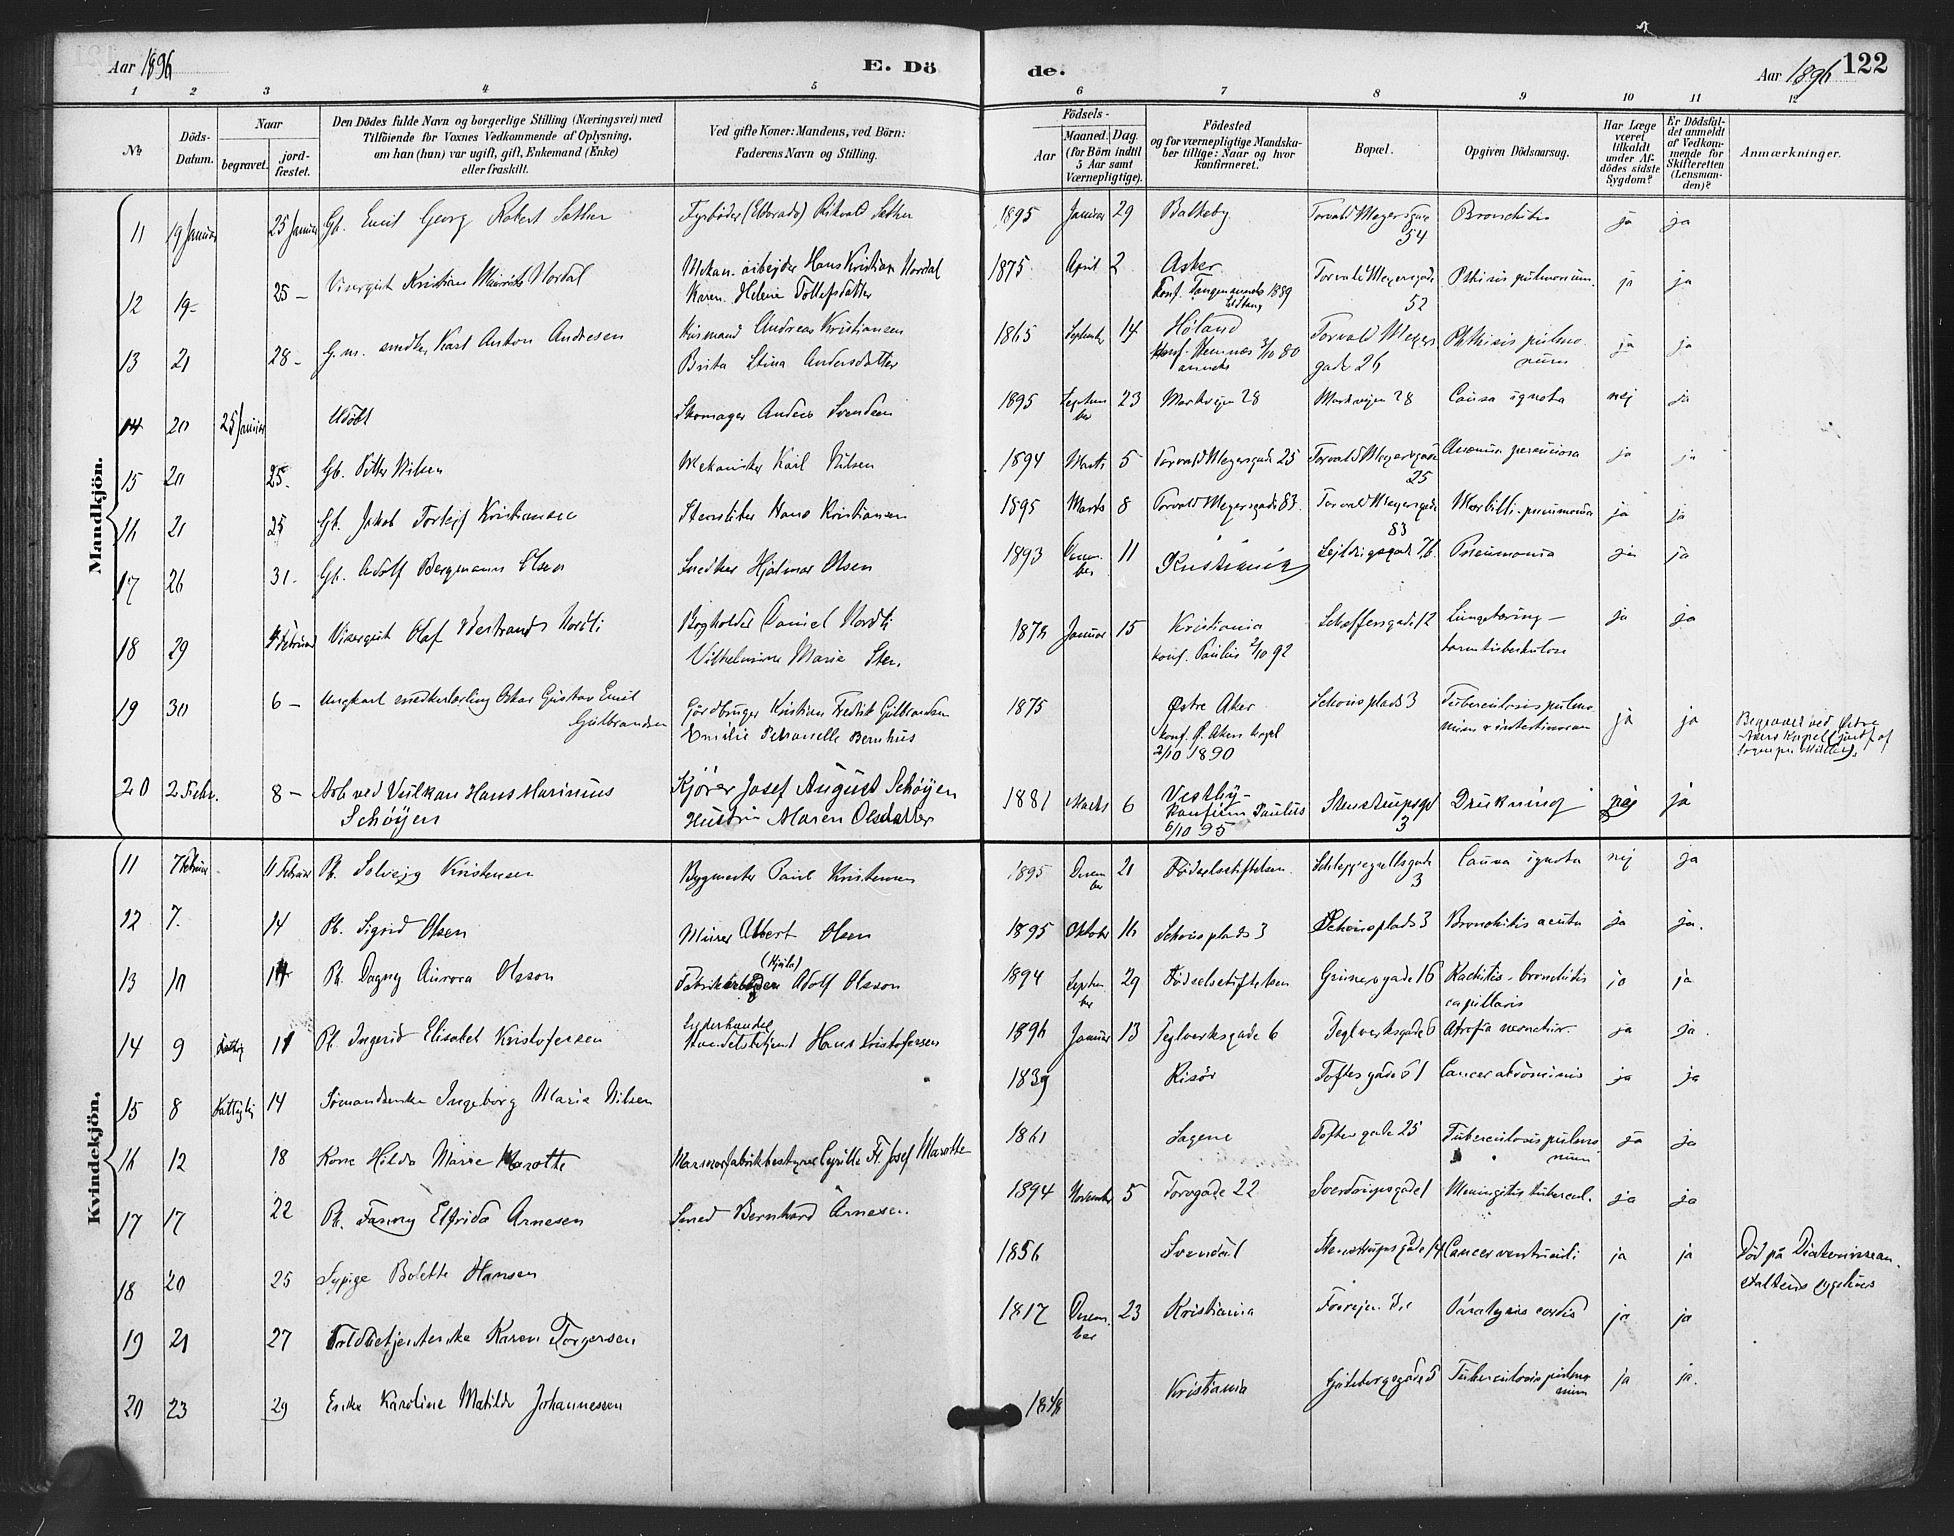 Aar 1896
E. Dö
de.
Aar 1896
122
1 2 3 4 5 6 7 8 9 10 11 12
No
Döds-Datum.
Naar
begravet.
jord-fæstet.
Den Dödes fulde Navn og borgerlige Stilling (Næringsvei) med
Tilföiende for Voxnes Vedkommende af Oplysning,
om han (hun) var ugift, gift, Enkemand (Enke)
eller fraskilt.
Ved gifte Koner: Mandens, ved Börn:
Faderens Navn og Stilling.
Födsels-
Aar
Maaned. Dag.
(for Börn indtil
5 Aar samt
Værnepligtige).
Födested
og for værnepligtige Mandska-
ber tillige: Naar og hvor
konfirmeret.
Bopæl.
Opgiven Dödsaarsag.
Har Læge
været
tilkaldt
under Af-
dödes sidste
Sygdom?
Er Dödsfal-
det anmeldt
af Vedkom-
mende for
Skifteretten
(Lensman-
den)?
Anmærkninger.
Mandkjön.
11 19 Januar 25 Januar Gb. Emil Georg Robert Sather Fyrbøder (Eldorado) Sather 1895 Januar 29 Balkeby Torvald Meyersgade 54 Bronchitis ja ja
12 19 - 25 - Visergut Kristian Nordal Mekan. arbejder Hans Kristian Nordal
Karen Helene Tollefsdatter 1875 April 2 Asker
Konf. 1889 Torvald Meyersgade 52 Phthisis pulmonum. ja ja
13 21 28 - G.m. snedker Karl Anton Andresen Husmand Andreas Kristiansen
Brita Stina Andersdatter 1865 September 14 Høland
Konf. Hemnes 3/10 80
annex Torvald Meyers
gade 26 Phthisis pulmo
num ja ja
14 20 25 Januar Udøbt Skomager Anders Svendsen 1895 Septem
ber 23 Markvejen 28 Markvejen 28 Causa ignota nej ja
15 20 25. Gb. Petter Nilsen Mekaniker Karl Nilsen 1894 Marts 5 Torvald Meyersgade 25 Torvald Meyersgade
25 Anæmia perniciosa ja ja
16 21 25 Gb. Jakob Torleif Kristiansen Hans Kristiansen 1895 Marts 8 Torvald Meyersgade 83. Torvald Meyersgade
83 Morbilli-pneumonia ja ja
17 26 31. Gb. Adolf Bergmann Olsen Snedker Hjalmar Olsen 1893 Decem-
ber 11 Kristiania 76. Pneumonia ja ja
18 29 Februar Visergut Olaf Bertrand Nordli Bogholder Daniel Nordli
Vilhelmine Marie Januar 15 Kristiania
konf. Paulus 2/10 92 Schæffersgade 12 Lungebetændelse -
tarmtuberkulose ja ja
19 30 6 - Ungkarl snedkerlærling Oskar Gustav Emil
Gulbrandsen Gårdbruger Kristian Fredrik Gulbrandsen
Emilie Petronelle Bernhus 1875 Østre Aker
konf. Ø. Akers kapel
2/10 1890 Schousplads 3 Tuberculosis pulmo-
num & intestinorum ja ja Begravet ved Østre
Akers Kapel
20 2 Febr. 8 - Arb. ved Vulkan Hans Marinius
Schøyen Kjører Josef August Schøyen
Hustru Maren Olsdatter 1881 Marts 6 Vestby-
Konfirm. Paulus
6/10 95 Stenstrupsgd
3 Drukning nej ja
Kvindekjön.
11 7 Februar 11 Februar Pb. Solveig Kristensen Bygmester Paul Kristensen 1895 Decem
ber 21 Fødselsstiftelsen. Schleppegrellsgade
3 Causa ignota nej ja
12 7. 14 Pb. Sigrid Olsen Murer Albert Olsen 1895 Oktober 16 Schousplads 3 Schousplads 3 Bronchitis acuta ja ja.
13 10 14 Pb. Dagny Aurora Olsson Fabrikarbejder (Hjula) Adolf Olsson 1894 Septem
ber 29 Fødselsstiftelsen Grünersgade 16 Rachitis - bronchitis
capillaris ja ja
14 9 11 Pb. Ingerid Elisabet Kristofersen Hans Kristofersen 1896 Januar 13 Teglverksgade 6 Teglverksgade 6 Atrofia neonator. ja ja.
15 8 Fattig 14 Sømandsenke Ingeborg Maria Nilsen 1839 Risør Toftesgade 61 Cancer abdominis ja ja
16 12 18 Kone Hilda Marie Marotte Marmorfabrikbestyrer Cyrille Fr. Josef Marotte 1861 Sagene Toftesgade 25 Tuberculosis pulmo
num ja ja
17 17 22 Pb. Fanny Elfrida Arnesen Smed Bernhard Arnesen. 1894 November 5 Torvgade 22 Sverdrupsgade 1 Meningitis tubercul. ja ja
18 20 25 Sypige Bolette Hansen 1856 Svendal Stenstrupsgade 14 Cancer ventriculi ja ja Død på Diakonissean-
staltens sygehus
19 21 27 Toldbetjentenke Karen Torgersen 1817 Decem-
ber 23 Kristiania Paralysis cordis ja ja
20 23 29 Enke Karoline Matilde Johannessen 1848 Kristiania Gøteborgsgade 5 Tuberculosis pulmo
num ja ja.